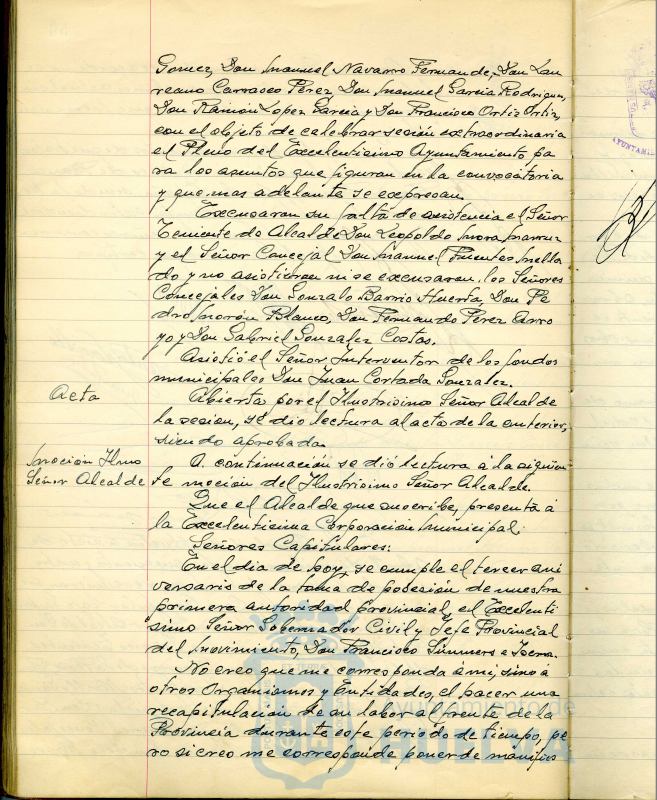 Gomez, Don Manuel Navarro Fernande, Don Lau
reano Carrasco Pérez, Don Manuel Garcia Rodriguez,
Don Ramón Lopez Garcia y Don Francisco Ortiz Ortiz,
con el objeto de celebrar sesión extraordinaria
el Pleno del Excelentisimo Ayuntamiento pa
ra los asuntos que figuran en la convocatoria
y que mas adelante se expresan.
Excusaron su falta de asistencia el Señor
Teniente de Alcalde Don Leopoldo Mora
y el Señor Concejal Don Manuel Fuentes Mella
do y no asistieron ni se excusaron, los Señores
Concejales Don Gonzalo Barrio Huerta, Don Pe
dro Morón Blanco, Don Fernando Pérez Arro
yo y Don Gabriel Gonzalez Costas.
Asistió el Señor Interventor de los fondos
municipales Don Juan Cortada Gonzalez.
Acta
Abierta por el Ilustrisimo Señor Alcalde
la sesion, se dio lectura al acta de la anterior,
siendo aprobada
Moción Ilmo
Señor Alcalde
A continuación se dió lectura á la siguien
te moción del Ilustrisimo Señor Alcalde.
Que el Alcalde que suscribe, presenta á
la Excelentisima Corporación Municipal.
Señores Capitulares:
En el dia de hoy, se cumple el tercer ani
versario de la toma de posesión de nuestra
primera autoridad provincial, el Excelenti
simo Señor Gobernador Civil y Jefe Provincial
del Movimiento, Don Francisco Summers e Isern.
No creo que me corresponda á mi, sino á
otros Organismos y Entidades, el hacer una
recapitulación de su labor al frente de la
Provincia durante este periodo de tiempo, pe
ro si creo me corresponde poner de manifies
Ayuntamiento de
HUELVA
AYUNTAMIE